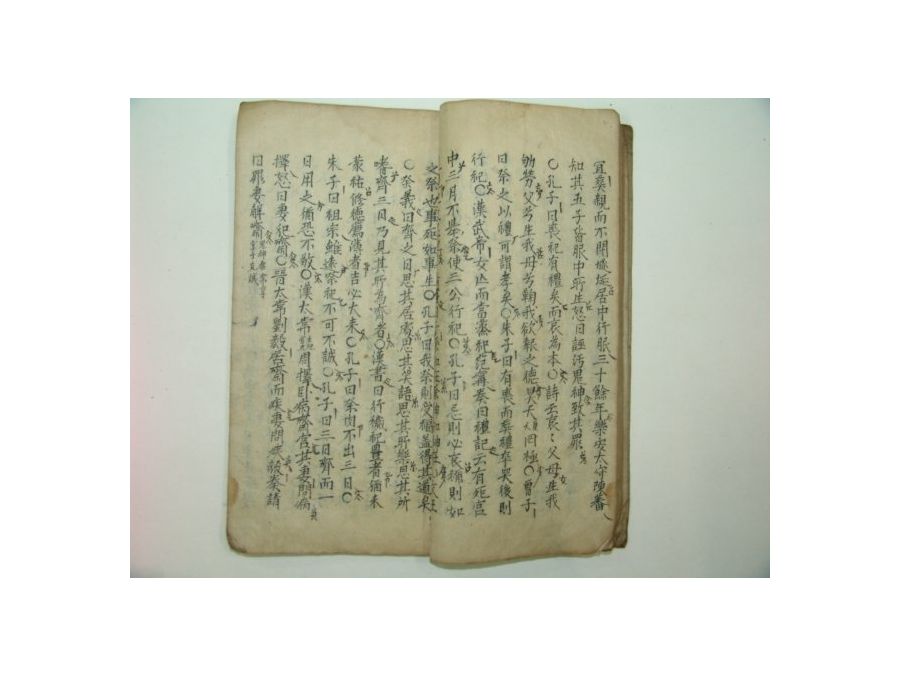 宣葬親而不閉埏埏居中行服三十餘年樂安太守陳蕃
知其五子皆服中所生怒曰誑汚鬼神致其罪
○孔子曰喪祀有禮矣而哀為本○詩云哀〻父母生我
劬勞父兮生我母兮鞠我欲報之德昊天罔極○曾子
曰祭之以禮可謂孝矣○朱子曰有喪而祭禮卒哭後則
行祀○漢武帝女亡而當烝祀范甯奏曰禮記云有死宮
中三月不擧祭使三公行祀○孔子曰忌則必哀稱則如
之祭也事死如事生○孔子曰我祭則受福盖得其道矣
○祭義曰齊之日思其居處思其笑語思其所樂思其所
嗜齊三日乃見其所為齊者○漢書曰行穢祀豊者猶未
蒙祐修德薦薄者吉必大来○孔子曰祭肉不出三日○
朱子曰祖宗雖遠祭祀不可不誠○孔子曰三日齊而一
日用之猶恐不敬○漢太常周擇卧病齋宮其妻問病
擇怒曰妻犯齋○晉太常劉毅居齋而疾妻問毅奏請
曰罪妻解齋